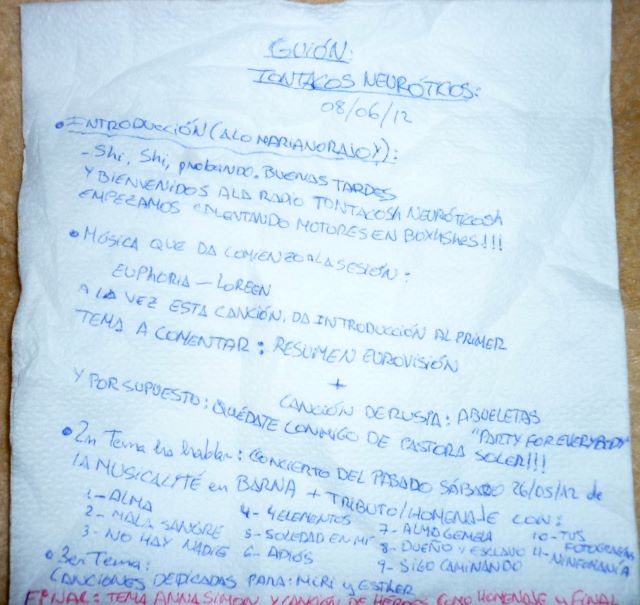 GUIÓN:
TONTACOS NEURÓTICOS:
08/06/12
• INTRODUCCIÓN (A LO MARIANO RAJOY):
- Shi, Shi, probando. BUENAS TARDES
Y BIENVENIDOS A LA RADIO TONTACOSH NEURÓTICOSH
EMPEZAMOS CALENTANDO MOTORES EN BOXUSHES!!!
• MÚSICA QUE DA COMIENZO A LA SESIÓN:
EUPHORIA – LOREEN
A LA VEZ ESTA CANCIÓN, DA INTRODUCCIÓN AL PRIMER
TEMA A COMENTAR: RESUMEN EUROVISIÓN
+
CANCIÓN DE RUSIA: ABUELETAS
"PARTY FOR EVERYBODY"
Y POR SUPUESTO: QUÉDATE CONMIGO DE PASTORA SOLER!!!
• 2n Tema ha hablar: CONCIERTO DEL PASADO SÁBADO 26/05/12 de
LA MUSICALITÉ en BARNA + TRIBUTO/HOMENAJE CON:
1- ALMA
2- MALA SANGRE
3- NO HAY NADIE
4- 4 ELEMENTOS
5- SOLEDAD EN MI
6- ADIÓS
7- ALMA GEMELA
8- DUEÑO Y ESCLAVO
9- SIGO CAMINANDO
10- TUS
FOTOGRAFÍAS
11- NINFOMANÍA
• 3er Tema:
CANCIONES DEDICADAS PARA: MIRI y ESTHER
FINAL: TEMA ANNA SIMON Y CANCIÓN DE HÉROES COMO HOMENAJE Y FINAL